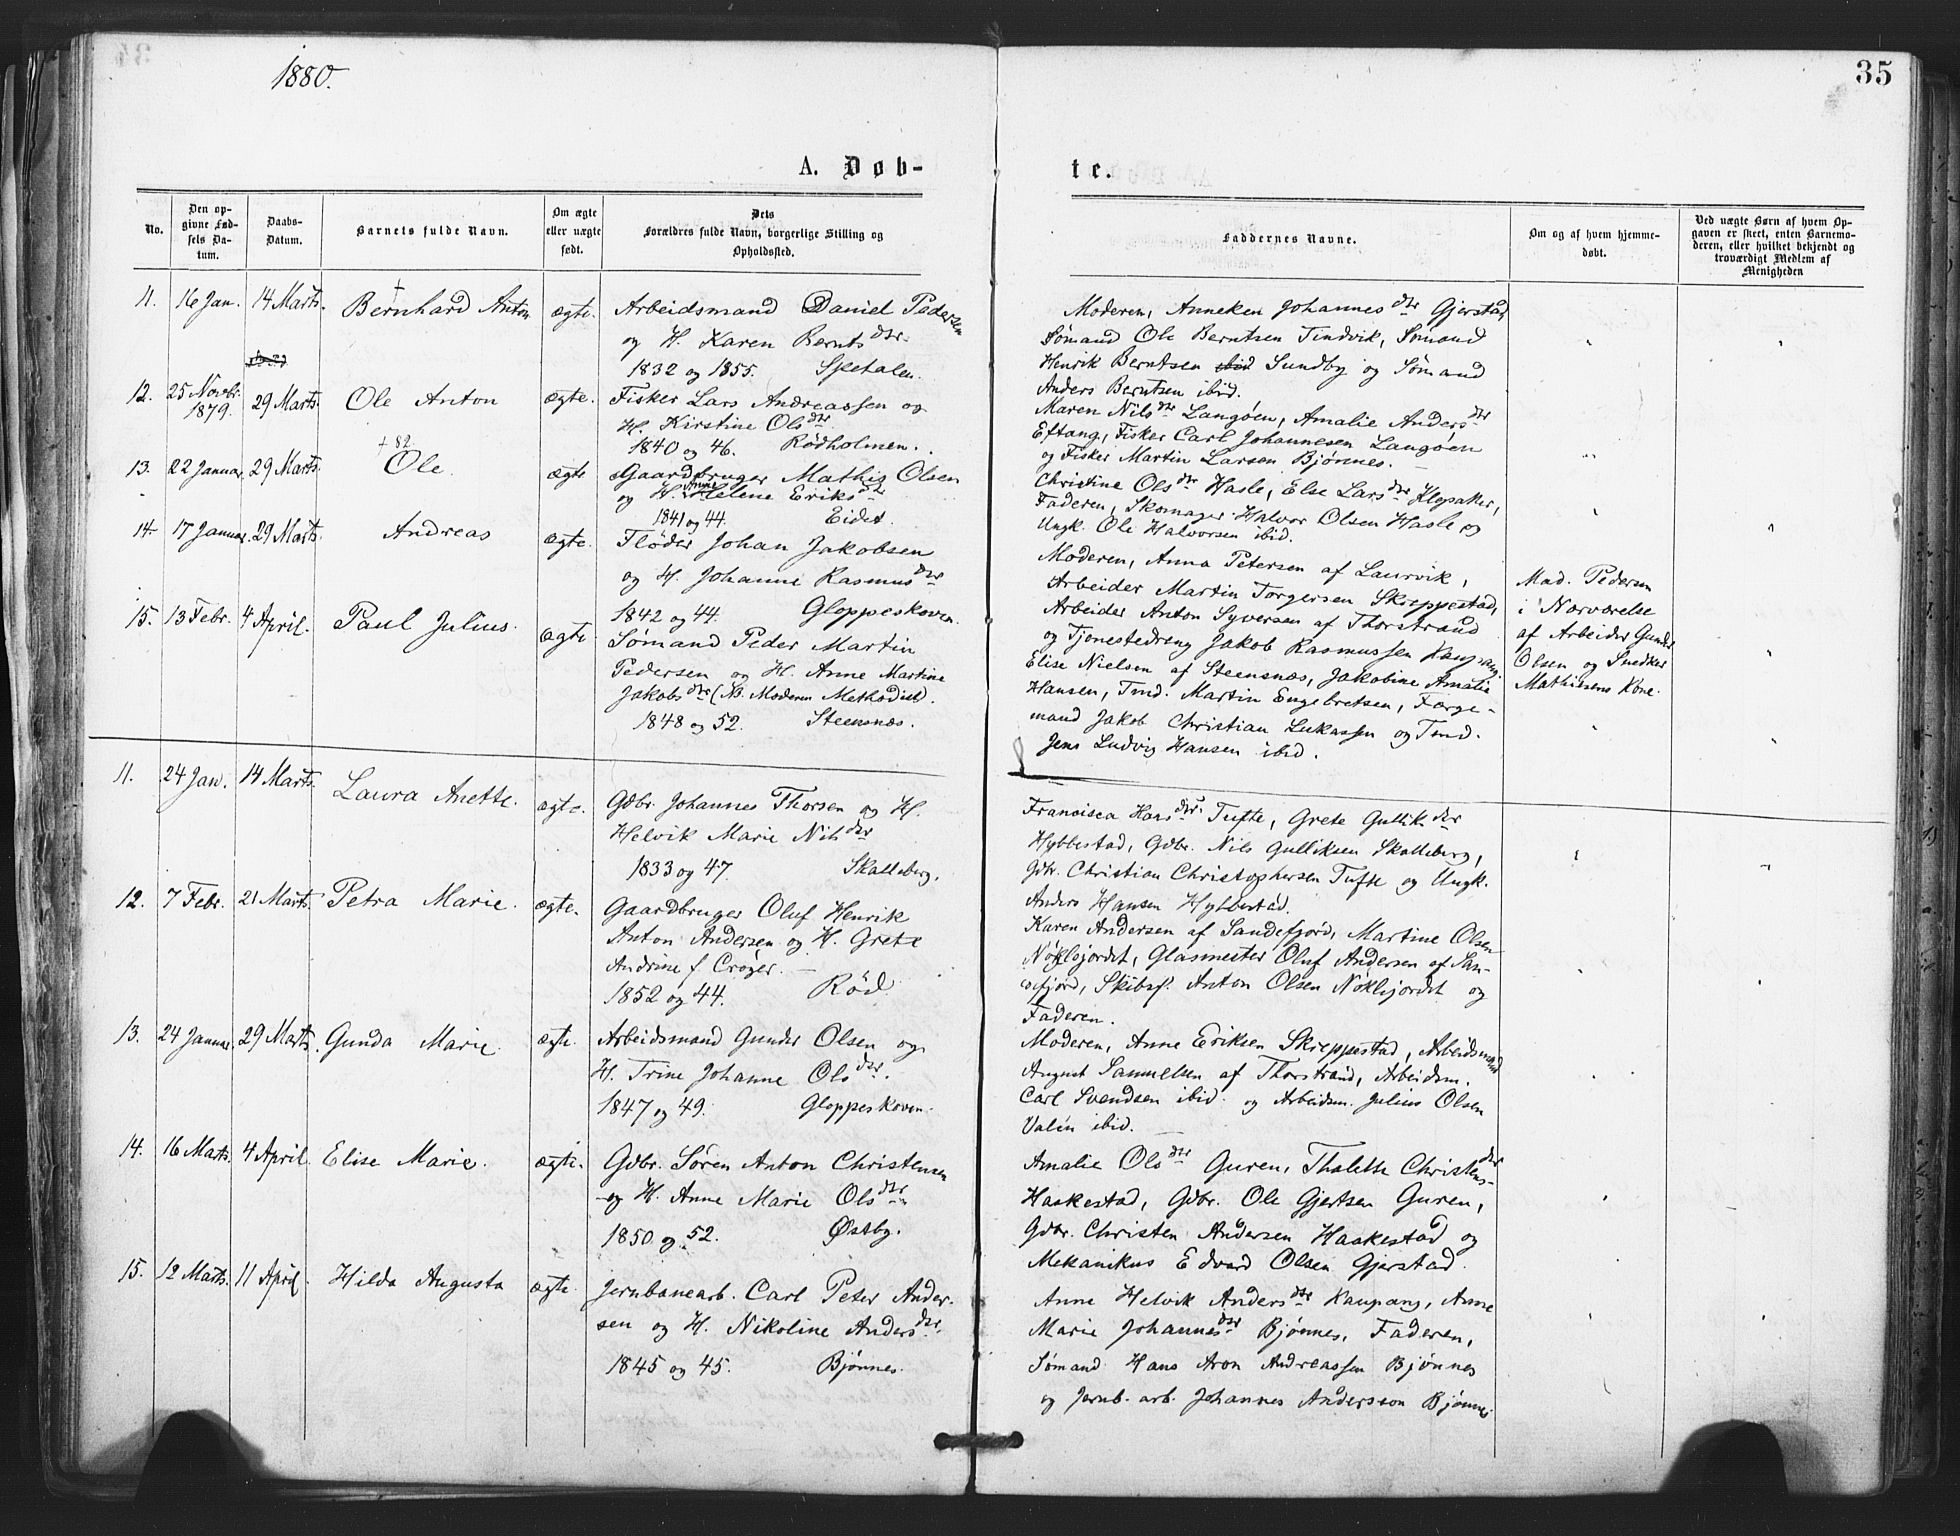 1880.
35
A. Døb-
te.
No.
Den op-
givne Fød-
sels Da-
tum.
Daabs-
Datum.
Barnets fulde Navn.
Om ægte
eller uægte
født.
Dets
Forældres fulde Navn, borgerlige Stilling og
Opholdssted.
Faddernes Navne.
Om og af hvem hjemme-
døbt.
Ved uægte Børn af hvem Op-
gaven er skeet, enten Barnemo-
deren, eller hvilket bekjendt og
troværdigt Medlem af
Menigheden
11. 16 Jan. 14 Marts. Bernhard Anton ægte. Arbeidsmand Daniel Pedersen
og H. Karen Bernts dtr.
1832 og 1855. Spetalen.
Moderen, Anneken Johannes dtr Gjerstad,
Sømand Ole Berntsen Tindvik, Sømand
Henrik Berntsen ibid Sundby og Sømand
Anders Berntsen ibid.
12. 25 Novbr. 1879. 29 Marts. Ole Anton ægte. Fisker Lars Andreassen og
H. Kirstine Ols dtr
1840 og 46. Rødholmen.
Maren Nils dtr Langøen, Amalie Anders dtr
Eftang, Fisker Carl Johannesen Langøen
og Fisker Martin Larsen Bjønnes.
13. 22 Januar. 29 Marts. + 82 Ole. ægte Gaardbruger Mathis Olsen
og H. Anne Helene Eriks dtr
1841 og 44. Eidet.
Christine Ols dtr Hasle, Else Lars dtr Klepaker,
Faderen, Skomager Halvor Olsen Hasle og
Ungk. Ole Halvorsen ibid.
14. 17 Januar. 29 Marts. Andreas ægte. Fløder Johan Jakobsen
og H. Johanne Rasmus dtr
1842 og 44. Gloppeskoven.
Moderen, Anna Petersen af Laurvik,
Arbeider Martin Torgersen Skreppestad,
Arbeider Anton Syversen af Thorstrand
og Tjenestedreng Jakob Rasmussen Kaupang
Mad. Pedersen
i Nærværelse
af Arbeider Gunder
Olsen og Snedker
Mathisens Kone.
15. 13 Febr. 4 April. Paul Julius. ægte Sømand Peder Martin
Pedersen og H. Anne Martine
Jakobs dtr (Nb. Moderen Methodist).
1848 og 52. Steensnæs.
Elise Nielsen af Steensnæs, Jakobine Amalie
Hansen, Tmd. Martin Engebretsen, Færge-
mand Jakob Christian Lukassen og Tmd.
Jens Ludvig Hansen ibid.
11. 24 Jan. 14 Marts. Laura Anette. ægte. Gdbr. Johannes Thorsen og H.
Helvik Marie Nils dtr
1833 og 47. Skalleberg.
Francisca Hans dtr Tufte, Grete Gullik dtr
Hybbestad, Gdbr. Nils Gulliksen Skalleberg,
Gdbr. Christian Christophersen Tufte og Ungk.
Anders Hansen Hybbestad.
12. 7 Febr. 21 Marts. Petra Marie. ægte. Gaardbruger Oluf Henrik
Anton Andersen og H. Grete
Andrine f. Crøger.
1852 og 44. Rød.
Karen Andersen af Sandefjord, Martine Olsen
Nøklegjordet, Glasmester Oluf Andersen af San-
defjord, Skibsf. Anton Olsen Nøklegjordet og
Faderen.
13. 24 Januar. 29 Marts. Gunda Marie. ægte. Arbeidsmand Gunder Olsen og
H. Trine Johanne Ols dtr.
1847 og 49. Gloppeskoven.
Moderen, Anne Eriksen Skreppestad, Arbeidsmand
August Samuelsen af Thorstrand, Arbeidsm.
Carl Svendsen ibid. og Arbeidsm. Julius Olsen
Valén ibid.
14. 16 Marts. 4 April. Elise Marie. ægte. Gdbr. Søren Anton Christensen
og H. Anne Marie Ols dtr
1850 og 52. Østby.
Amalie Ols dtr Guren, Thalette Christens dtr
Haakestad, Gdbr. Ole Gjertsen Guren,
Gdbr. Christen Andersen Haakestad og
Mekanikus Edvard Olsen Gjerstad.
15. 12 Marts. 11 April. Hilda Augusta ægte. Jernbanearb. Carl Peter Ander-
sen og H. Nikoline Anders dtr
1845 og 45. Bjønnes.
Anne Helvik Anders dtr Kaupang, Anne
Marie Johannes dtr Bjønnes, Faderen,
Sømand Hans Aron Andreassen Bjønnes
og Jernb. arb. Johannes Andersson Bjønnes.